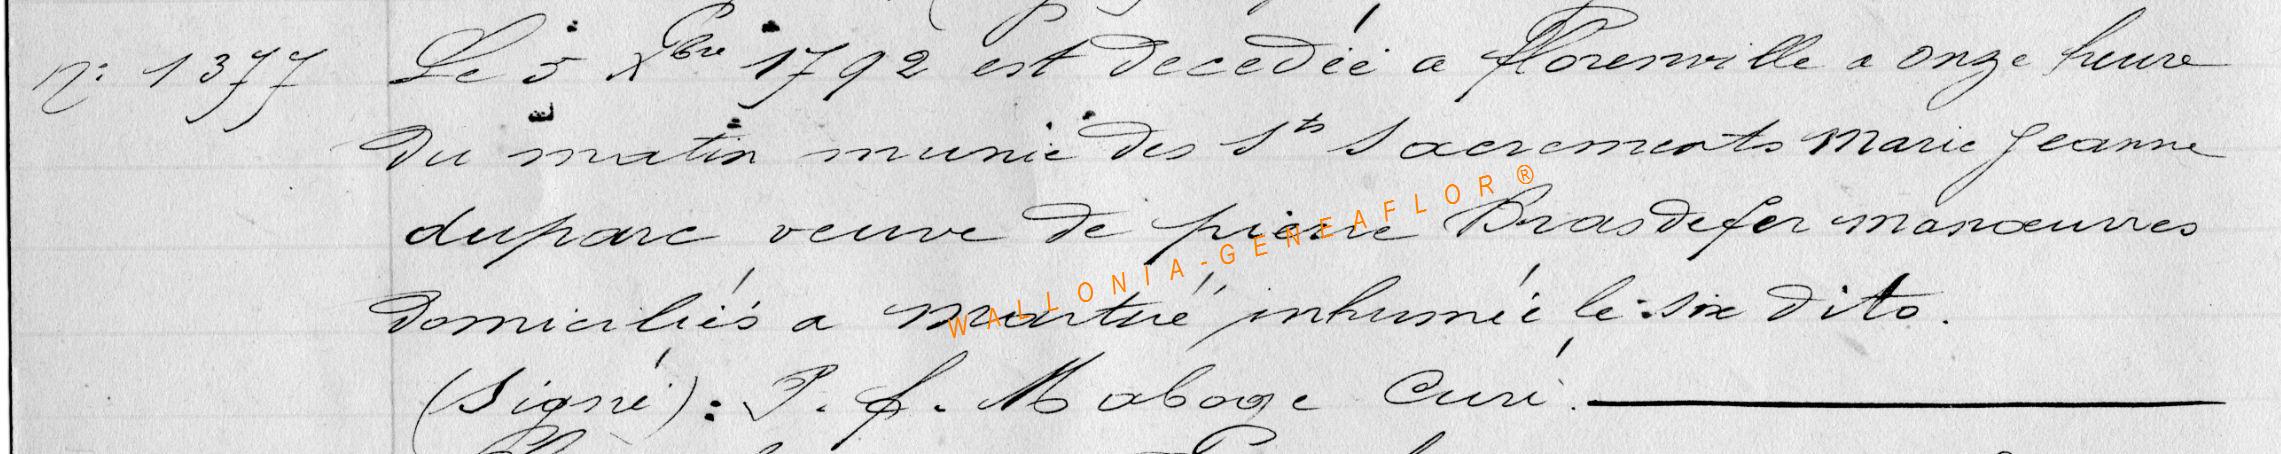 n: 1377 Le 5 Xbre 1792 est decedée a florenville a onze heure
du matin munie des Sts Sacrements Marie Jeanne
duparc veuve de pierre Brasdefer manœuvres
domiciliés a martué inhumée le six dito.
(Signé): P. f. Maboge Curé.
WALLONIA-GENEAFLOR®